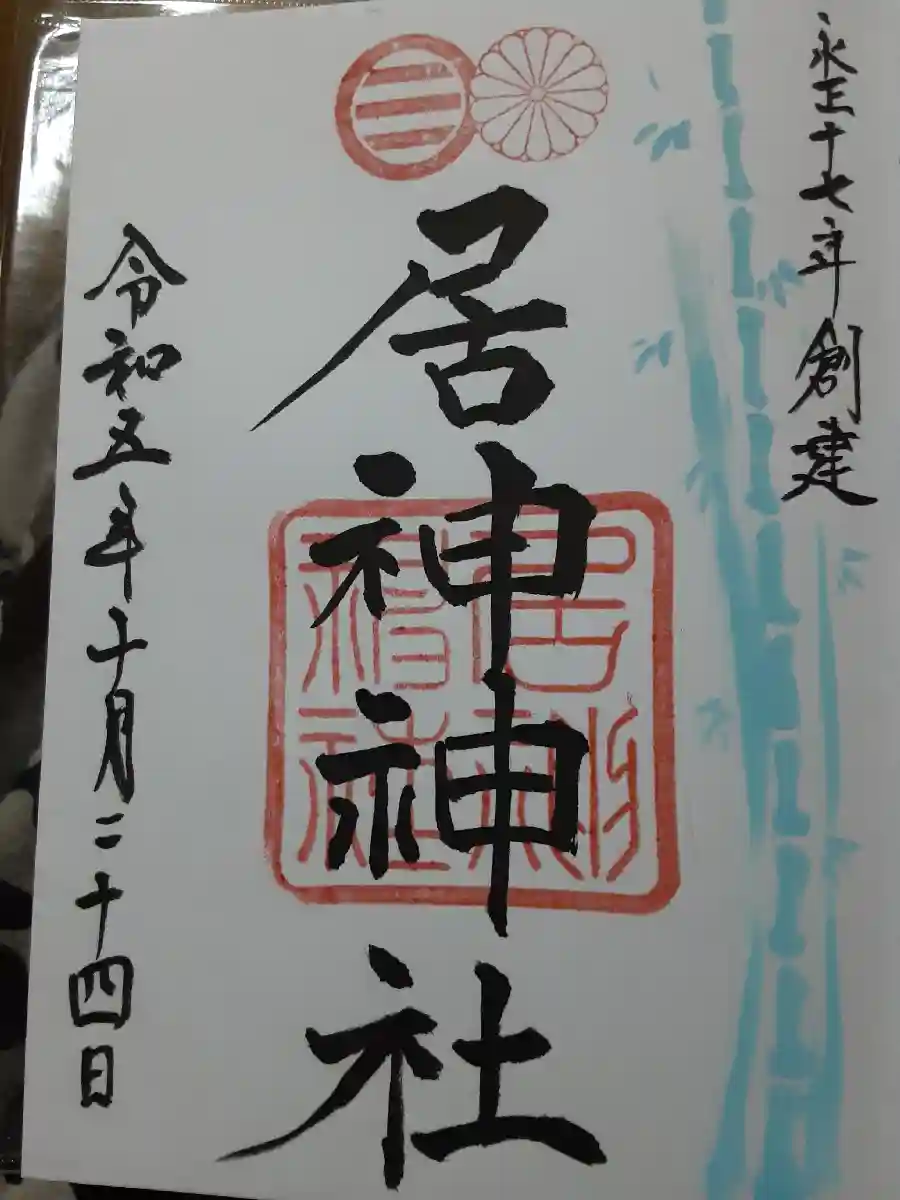 永正十七年創建
居神神社
令和五年十月二十四日